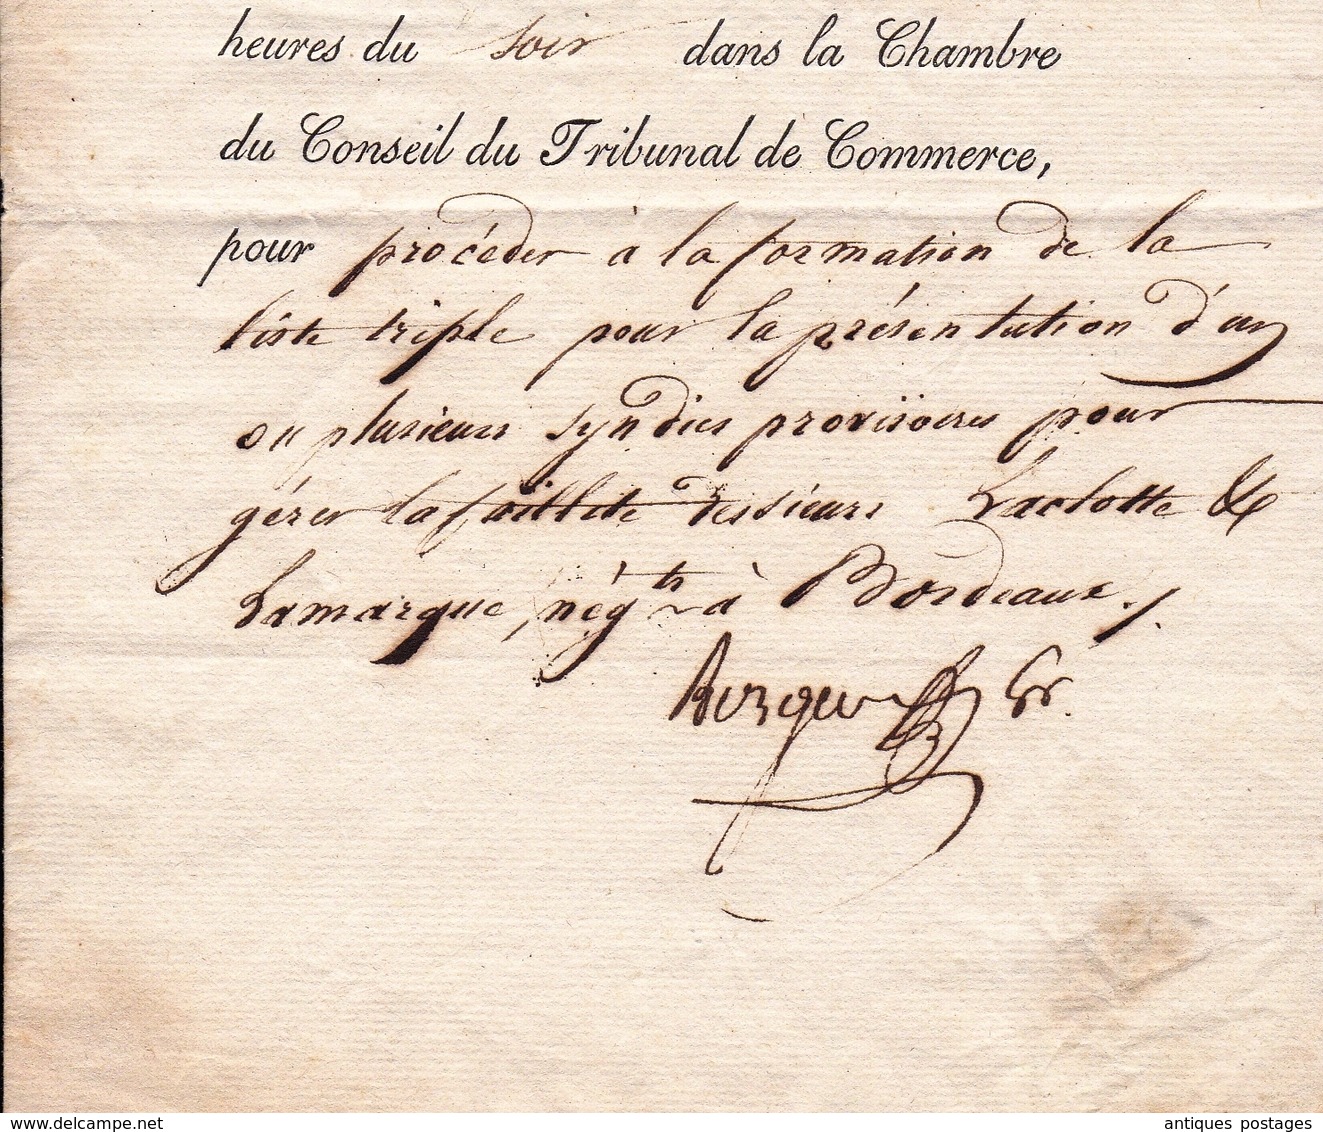 heures du soir dans la Chambre
du Conseil du Tribunal de Commerce,
pour procéder à la formation de la
liste triple pour la présentation d'un
ou plusieurs syndics provisoires pour
gérer la faillite des sieurs Laclotte &
Lamarque, nég.ts à Bordeaux./.
Gr.
www.delcampe.net
antiques postages